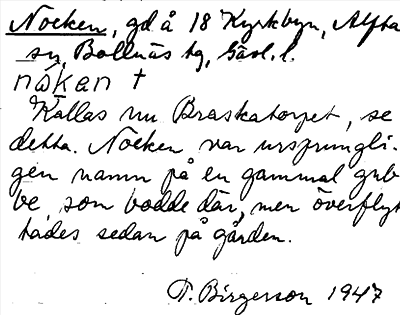 Nocken, gd å 18 Kyrkbyn, Alfta
sn, Bollnäs tg, Gävl. l.
nåkan †
Kallas nu Braskatorpet, se
detta. Nocken var ursprungli-
gen namn på en gammal gub-
be, som bodde där, men överflyt-
tades sedan på gården.
T. Birgerson 1947